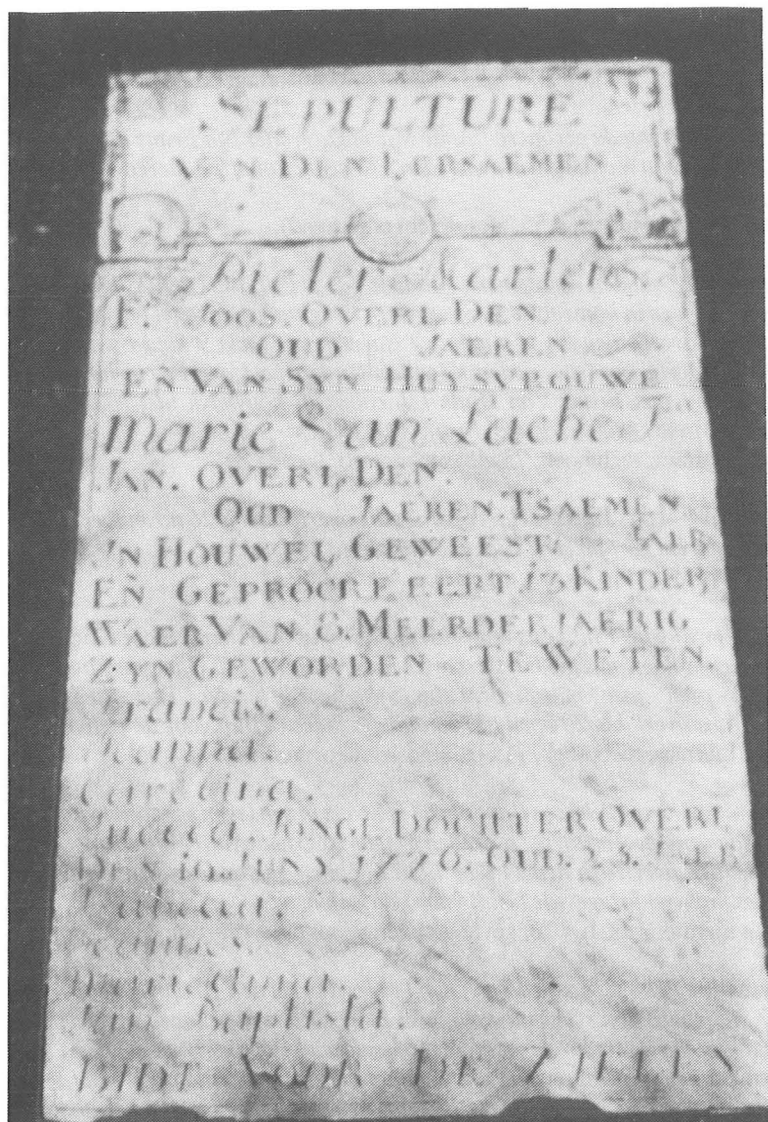 SEPULTURE
VAN DEN EERSAEMEN
Pieter Karlens.
F.s JOOS. OVERL. DEN.
OUD JAEREN
EÑ VAN SYN HUYSVROUWE
Marie Van Lache F.a
JAN. OVERL. DEN.
OUD JAEREN. TSAEMEN
IN HOUWEL. GEWEEST: JAER
EÑ GEPROCREEERT 13 KINDER,
WAER VAN 8. MEERDERJAERIG
ZYN GEWORDEN TE WETEN.
Francis.
Joanna.
Carolina.
JONGE DOCHTER OVERL.
DEN 19. JUNY 1770. OUD. 25. JAER
Isabella.
Joannes.
Marie Anna.
Jan Baptista.
BIDT VOOR DE ZIELEN